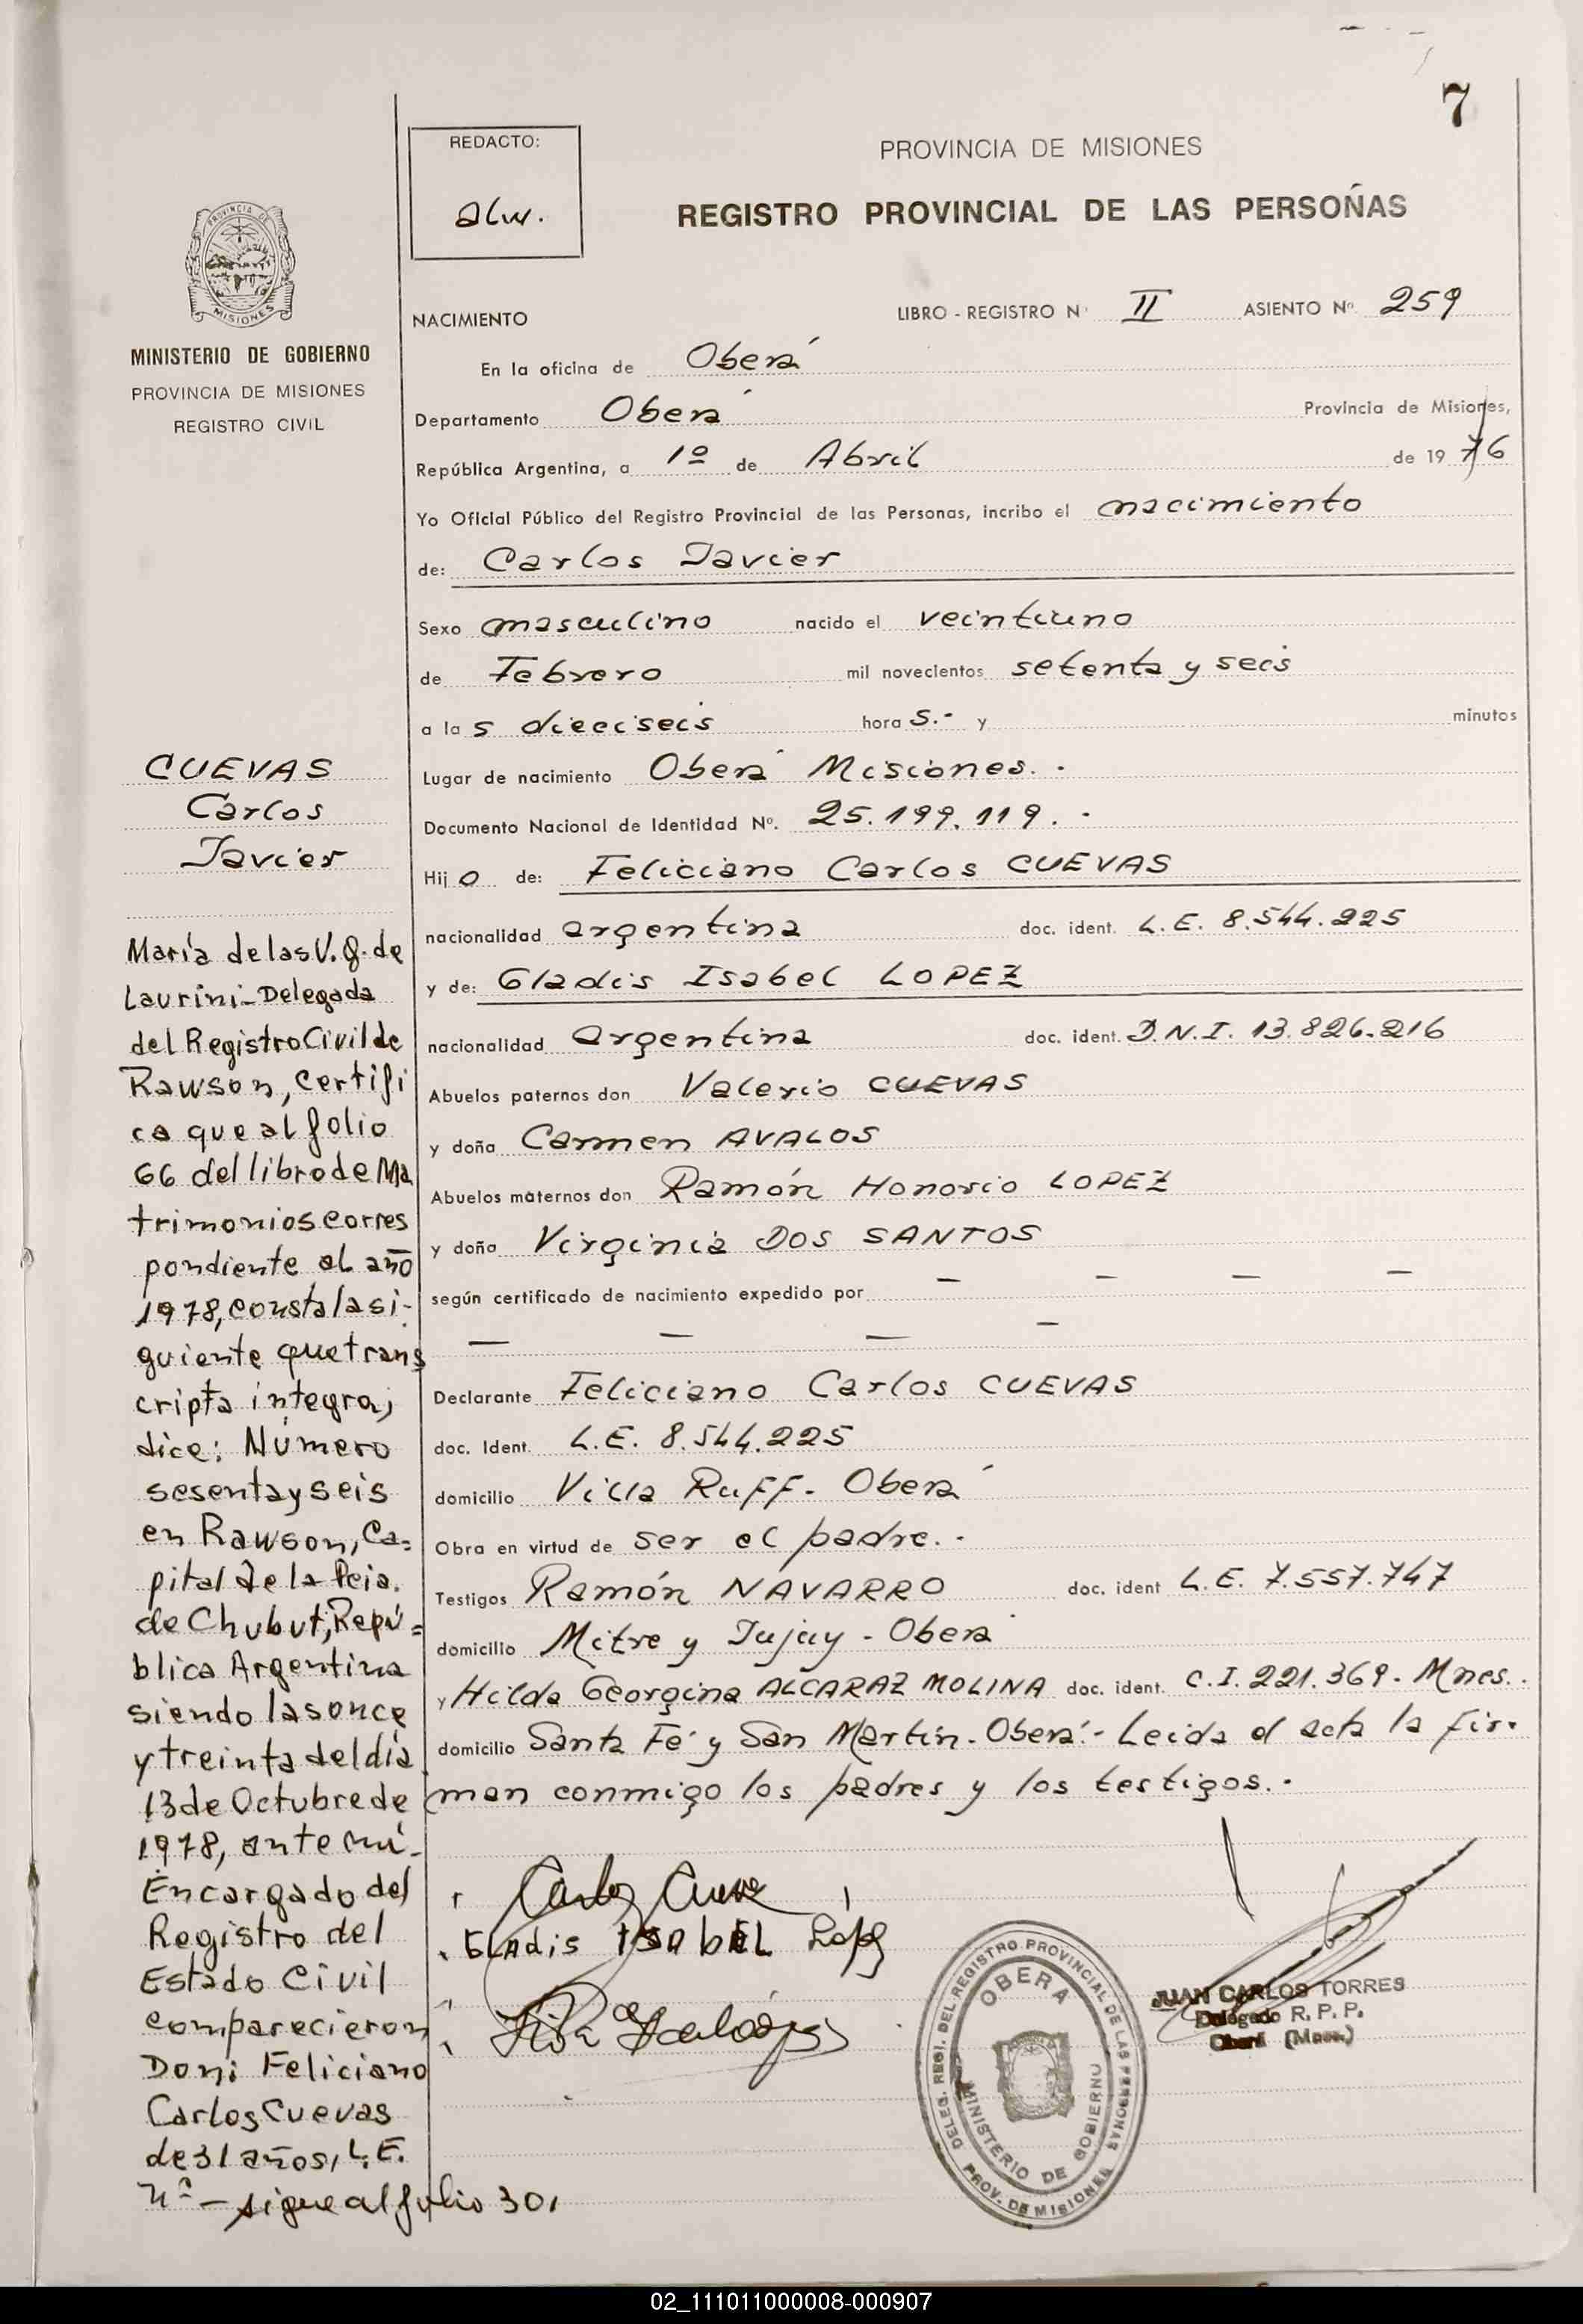 7
REDACTO:
alw.
PROVINCIA DE MISIONES
REGISTRO PROVINCIAL DE LAS PERSONAS
PROVINCIA DE
MISIONES
MINISTERIO DE GOBIERNO
PROVINCIA DE MISIONES
REGISTRO CIVIL
NACIMIENTO
LIBRO - REGISTRO Nº II ASIENTO Nº 259
En la oficina de Oberá
Departamento Oberá Provincia de Misiones,
República Argentina, a 1º de Abril de 1976
Yo Oficial Público del Registro Provincial de las Personas, incribo el nacimiento
de: Carlos Javier
Sexo masculino nacido el veintiuno
de Febrero mil novecientos setenta y seis
a las dieciseis horas.- y minutos
Lugar de nacimiento Oberá Misiones.-
Documento Nacional de Identidad Nº. 25.199.119.-
Hijo de: Feliciano Carlos CUEVAS
nacionalidad argentina doc. ident. L.E. 8.544.225
y de: Gladis Isabel LOPEZ
nacionalidad argentina doc. ident. D.N.I. 13.826.216
Abuelos paternos don Valerio CUEVAS
y doña Carmen AVALOS
Abuelos maternos don Ramón Honorio LOPEZ
y doña Virginia DOS SANTOS
según certificado de nacimiento expedido por — — — —
— — — —
Declarante Feliciano Carlos CUEVAS
doc. Ident. L.E. 8.544.225
domicilio Villa Ruff. Oberá
Obra en virtud de ser el padre.-
Testigos Ramón NAVARRO doc. ident L.E. 7.557.747
domicilio Mitre y Jujuy - Oberá
y Hilda Georgina ALCARAZ MOLINA doc. ident. C.I. 221.369. Mnes..
domicilio Santa Fé y San Martín. Oberá.- Leida el acta la fir-
man conmigo los padres y los testigos.-
CUEVAS
Carlos
Javier
María de las V. G. de
Laurini - Delegada
del Registro Civil de
Rawson, certifi
ca que al folio
66 del libro de Ma
trimonios corres
pondiente al año
1978, consta la si-
guiente que trans
cripta integra,
dice: Número
sesenta y seis
en Rawson, Ca=
pital de la Pcia.
de Chubut, Repú=
blica Argentina
siendo las once
y treinta del día
13 de Octubre de
1978, ante mí
Encargado del
Registro del
Estado Civil
comparecieron
Don: Feliciano
Carlos Cuevas
de 31 años, L.E.
Nº - sigue al folio 301
Carlos Cueva
GLADIS ISABEL López
DELEG. REGI. DEL REGISTRO PROVINCIAL DE LAS PERSONAS
OBERA
MINISTERIO DE GOBIERNO
PROV. DE MISIONES
JUAN CARLOS TORRES
Delegado R. P. P.
Oberá (Mnes.)
02_111011000008-000907